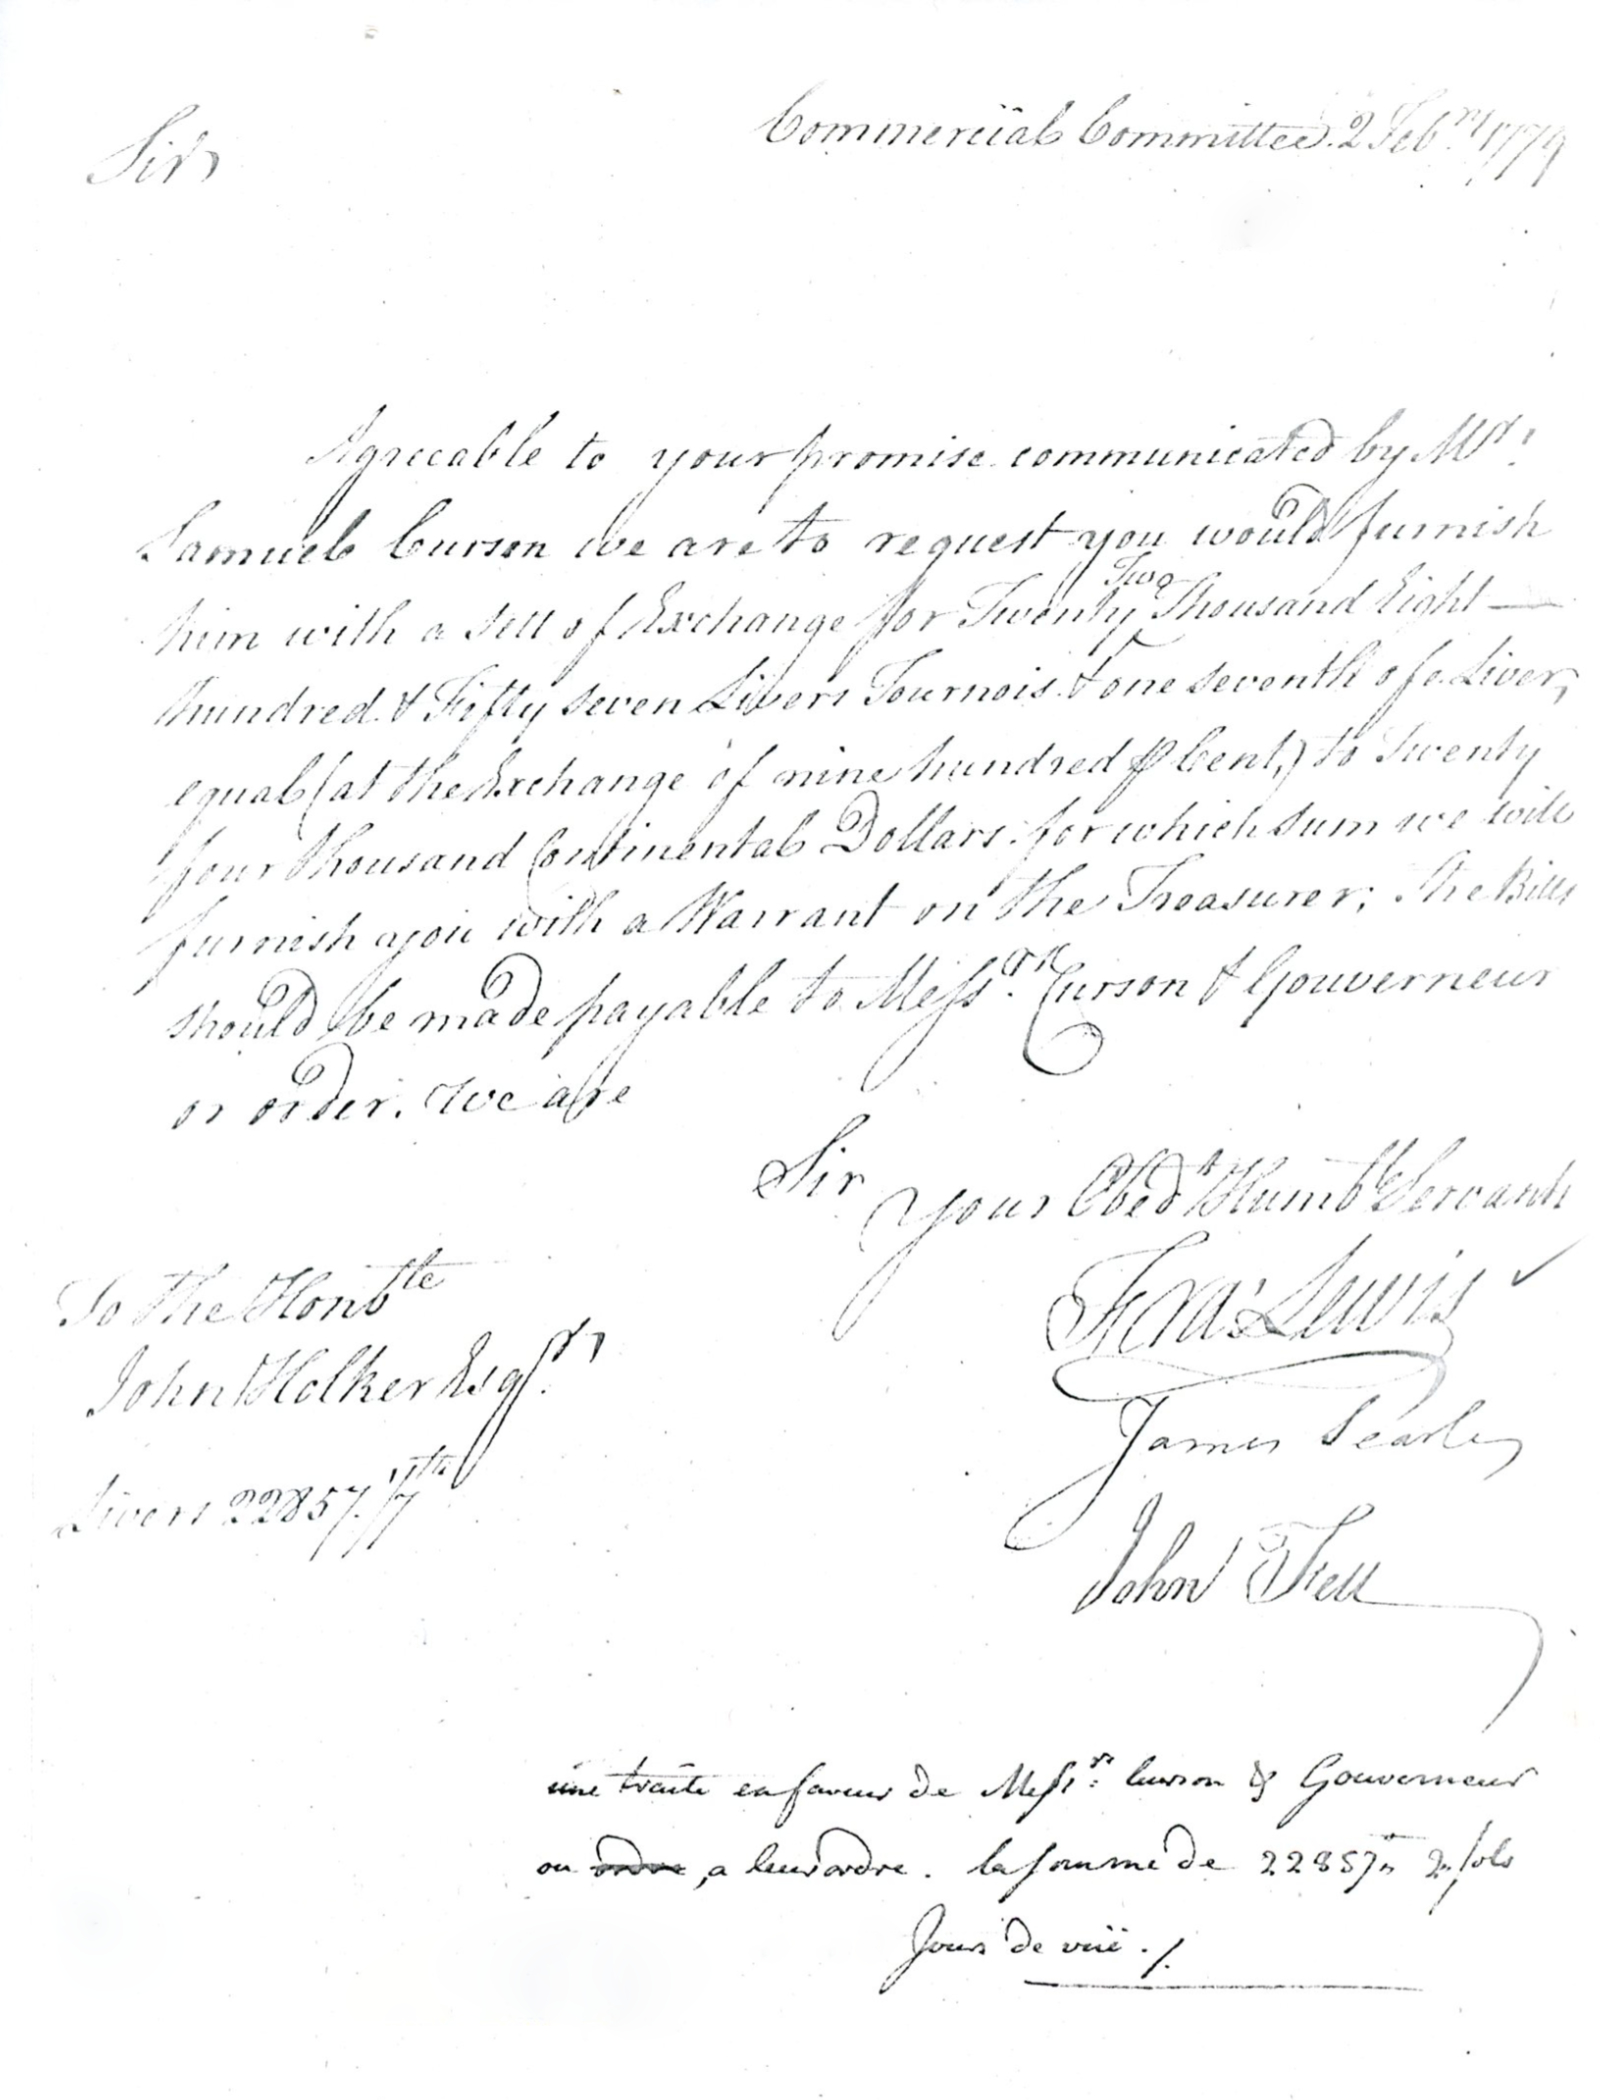 Commercial Committee. 2 Feb.ry 1779
Sir
Agreeable to your promise communicated by Mr.
Samuel Curson we are to request you would furnish
him with a sett of Exchange for Twenty Two Thousand Eight —
hundred & Fifty seven Livers Tournois & one seventh of a Liver,
equal (at the Exchange of nine hundred ⅌ Cent,) to Twenty
four thousand Continental Dollars. for which sum we will
furnish you with a Warrant on the Treasurer; the Bills
should be made payable to Messrs. Curson & Gouverneur
or order. We are
Sir
your Obedt Humble Servants
Fras Lewis
James Searle
John Fell
To The Honble
John Holker Esqr.
Livers 22857. 1/7th
une traite en faveur de Messrs: Curson & Gouverneur
ou ordre, a leur ordre. la somme de 22857 2 sols
Jours de vüe ./.